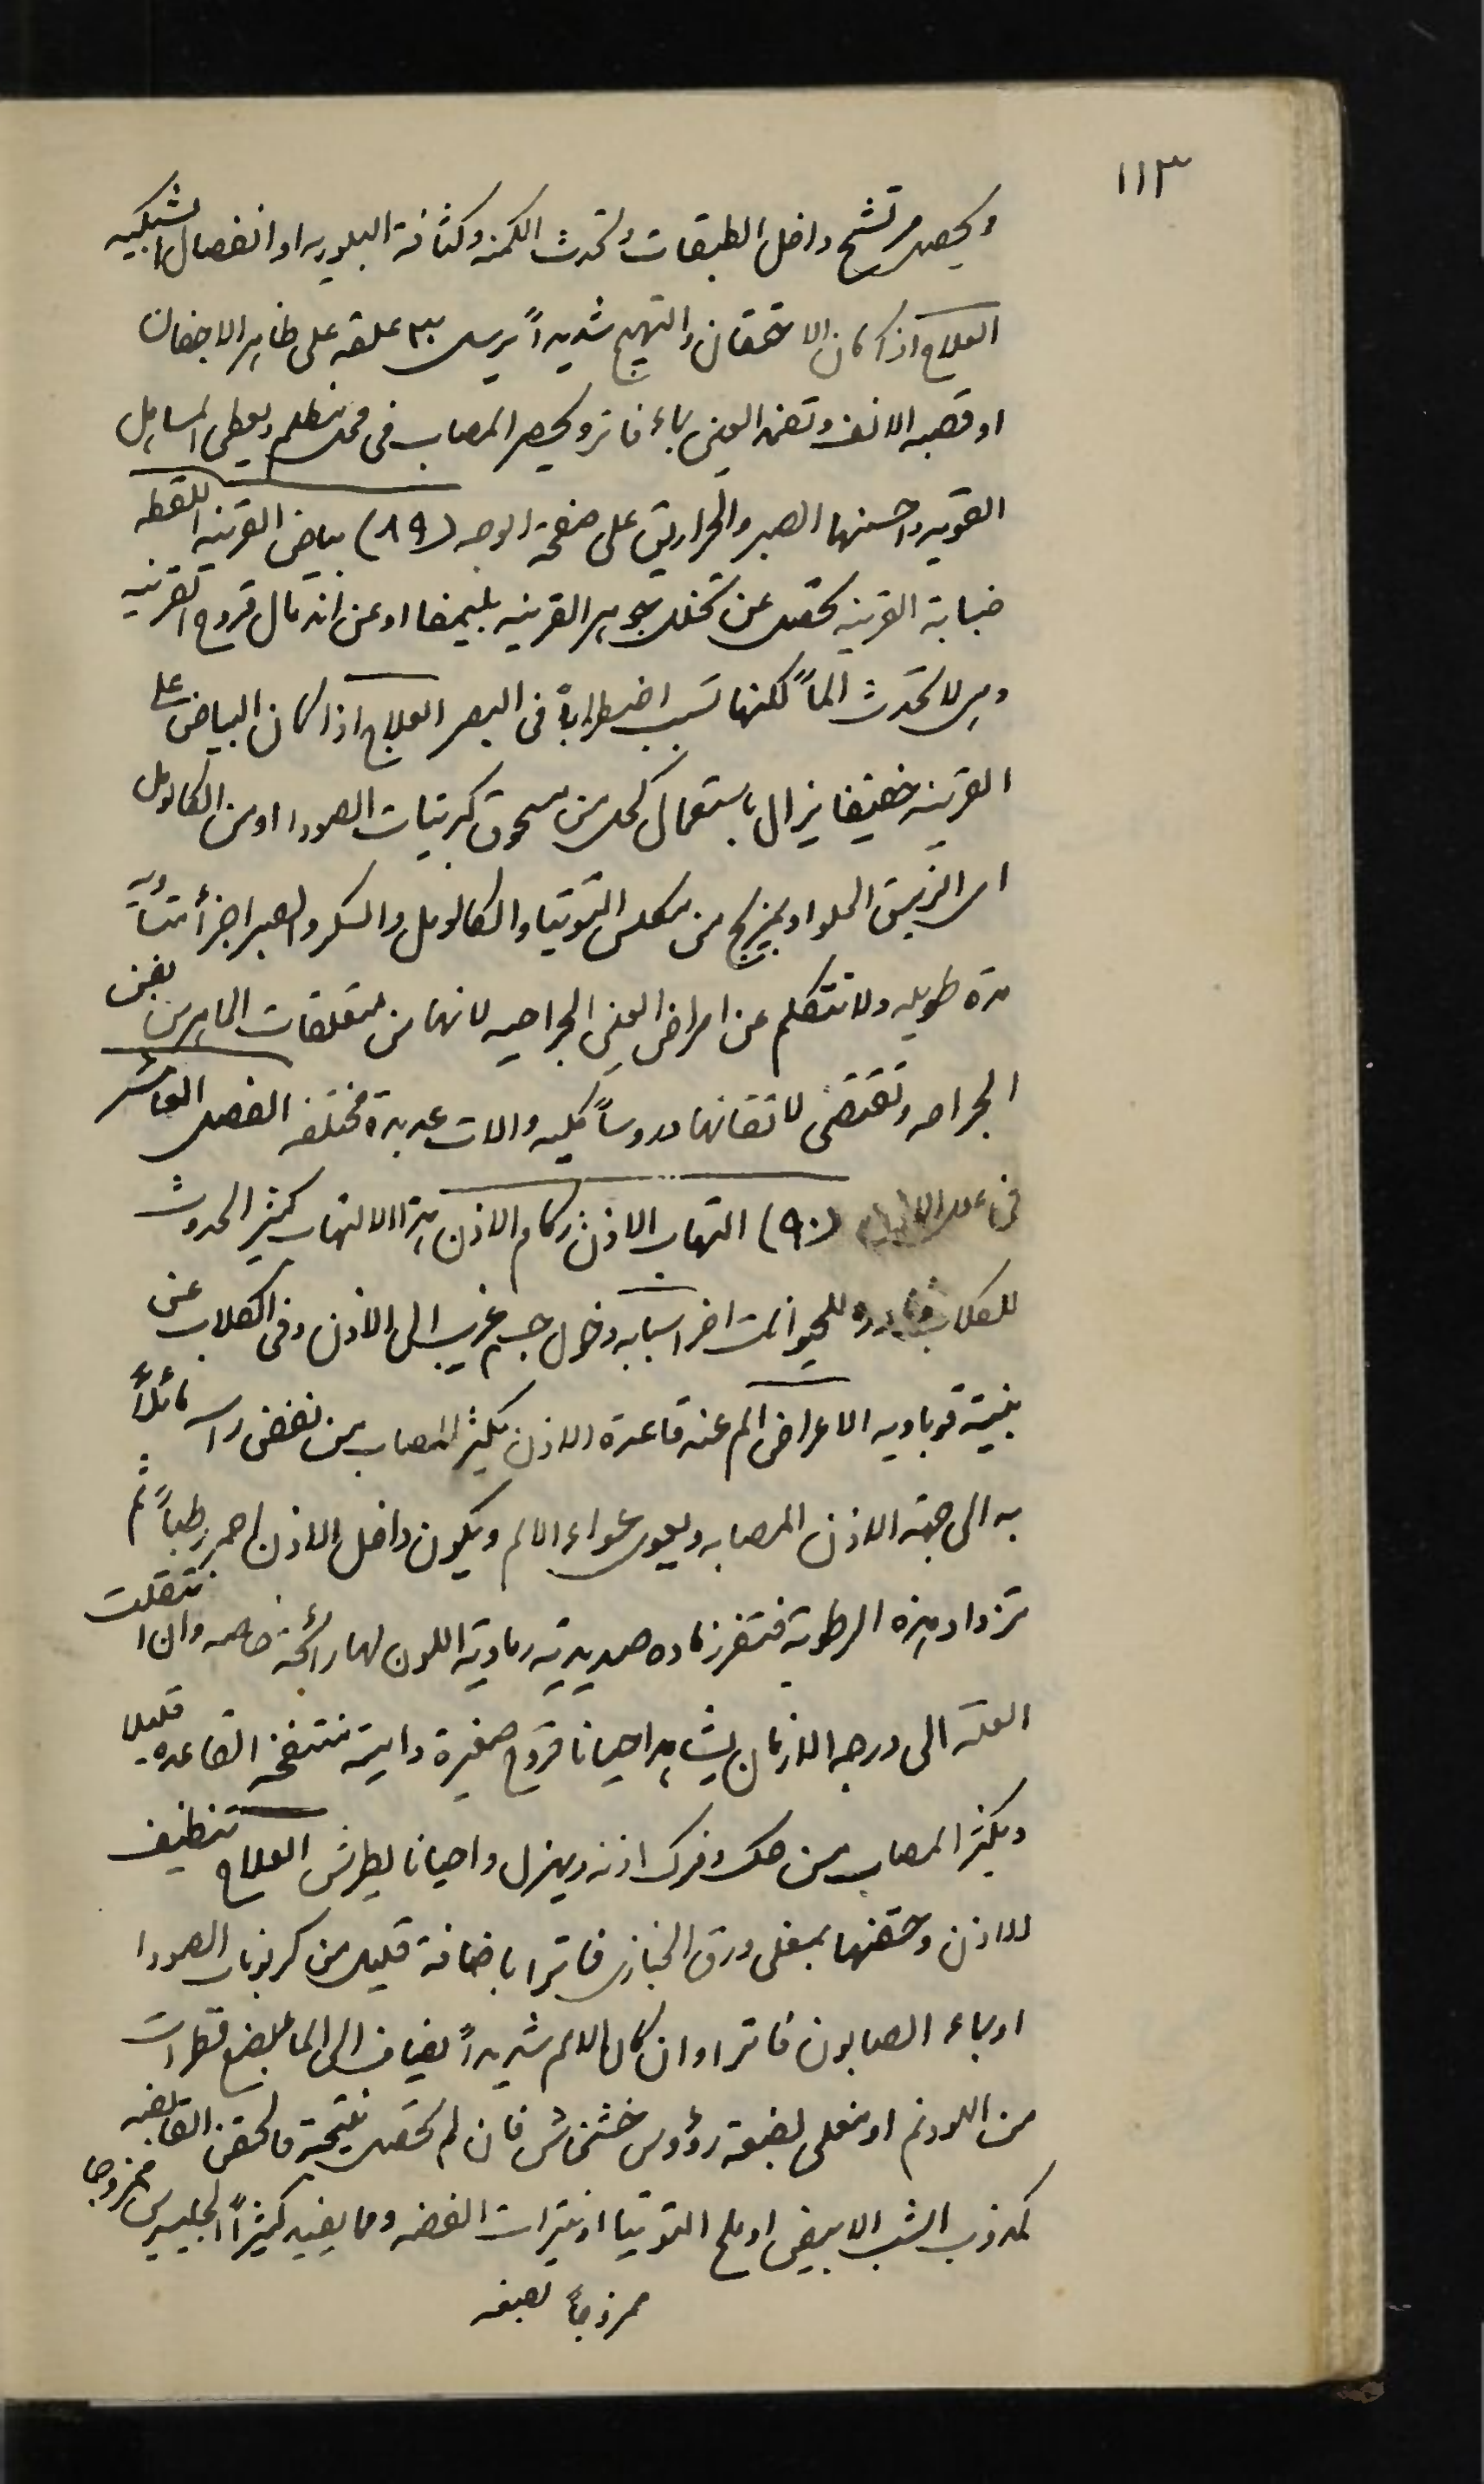 ١١٣
ويحصل ترشح داخل الطبقات وتحدث الكمنه وكثافة البلوريه او انفصال الشبكيه
العلاج اذا كان الاحتقان والتهيج شديداً يرسل ٣ علقه على ظاهر الاجفان
او قصبه الانف وتضمد العين بماء فاتر ويحصر المصاب في محل مظلم ويعطى المسايل
القويه واحسنها الصبر والحراريق على صفحة الوجه (٨٩) بياض القرنيه اللقطه
ضبابة القرنيه تحصل عن تخلل بجوهر القرنيه بليمفا او عن اندمال قروح القرنيه
وهي لا تحدث الماً لكنها تسبب اضطراباً في البصر العلاج اذا كان البياض على
القرنيه خفيفا يزال باستعمال كحل من مسحوق كبريتات الصودا او من الكالومل
اي الزيبق الحلو او بمزيج من مكلس التوتيا والكالومل والسكر والصبر اجزأ متساويه
مدة طويله ولا نتكلم عن امراض العين الجراحيه لانها من متعلقات الماهرين بفن
الجراحه وتقتضي لاتقانها دروساً كليه والات عديدة مختلفه الفصل العاشر
في علل الاذن (٩٠) التهاب الاذن زكام الاذن هذا الالتهاب كثير الحدوث
للكلاب ونادره للحيوانات اخر اسبابه دخول جسم غريب الى الاذن وفي الكلاب عن
بنية قوباويه الاعراض الم عند قاعدة الاذن يكثر المصاب من نفض راسه مائلاً
به الى جهة الاذن المصابه ويعوى عواء الالم ويكون داخل الاذن احمر رطباً ثم
تزداد هذه الرطوبة فتفرز ماده صديدية رمادية اللون لها رائحة خاصه وان انتقلت
العلة الى درجه الازمان يشاهد احيانا قروح صغيرة داميه تنتفخ القاعده قليلا
ويكثر المصاب من حك وفرك اذنه ويهزل واحيانا يطرش العلاج تنظيف
الاذن وحقنها بمغلى ورق الخبازى فاترا باضافة قليل من كربونات الصودا
او بماء الصابون فاترا وان كان الالم شديداً يضاف الى الماء بضع قطرات
من اللودنم او مغلى بضعة رؤوس خشخاش فان لم تحصل نتيجة فالحقن القابضه
كمذوب الشب الابيض او ملح التوتيا او نيترات الفضه ومما يفيد كثيراً الجليسرين ممزوجا
ممزوجاً بصبغه